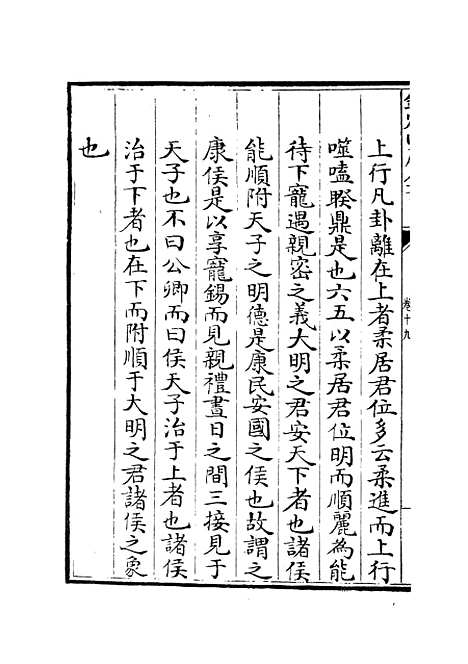 卷十九
上行凡卦離在上者柔居君位多云柔進而上行
噬嗑睽鼎是也六五以柔居君位明而順麗為能
待下寵遇親密之義大明之君安天下者也諸侯
能順附天子之明德是康民安國之侯也故謂之
康侯是以享寵錫而見親禮晝日之間三接見于
天子也不曰公卿而曰侯天子治于上者也諸侯
治于下者也在下而附順于大明之君諸侯之象
也